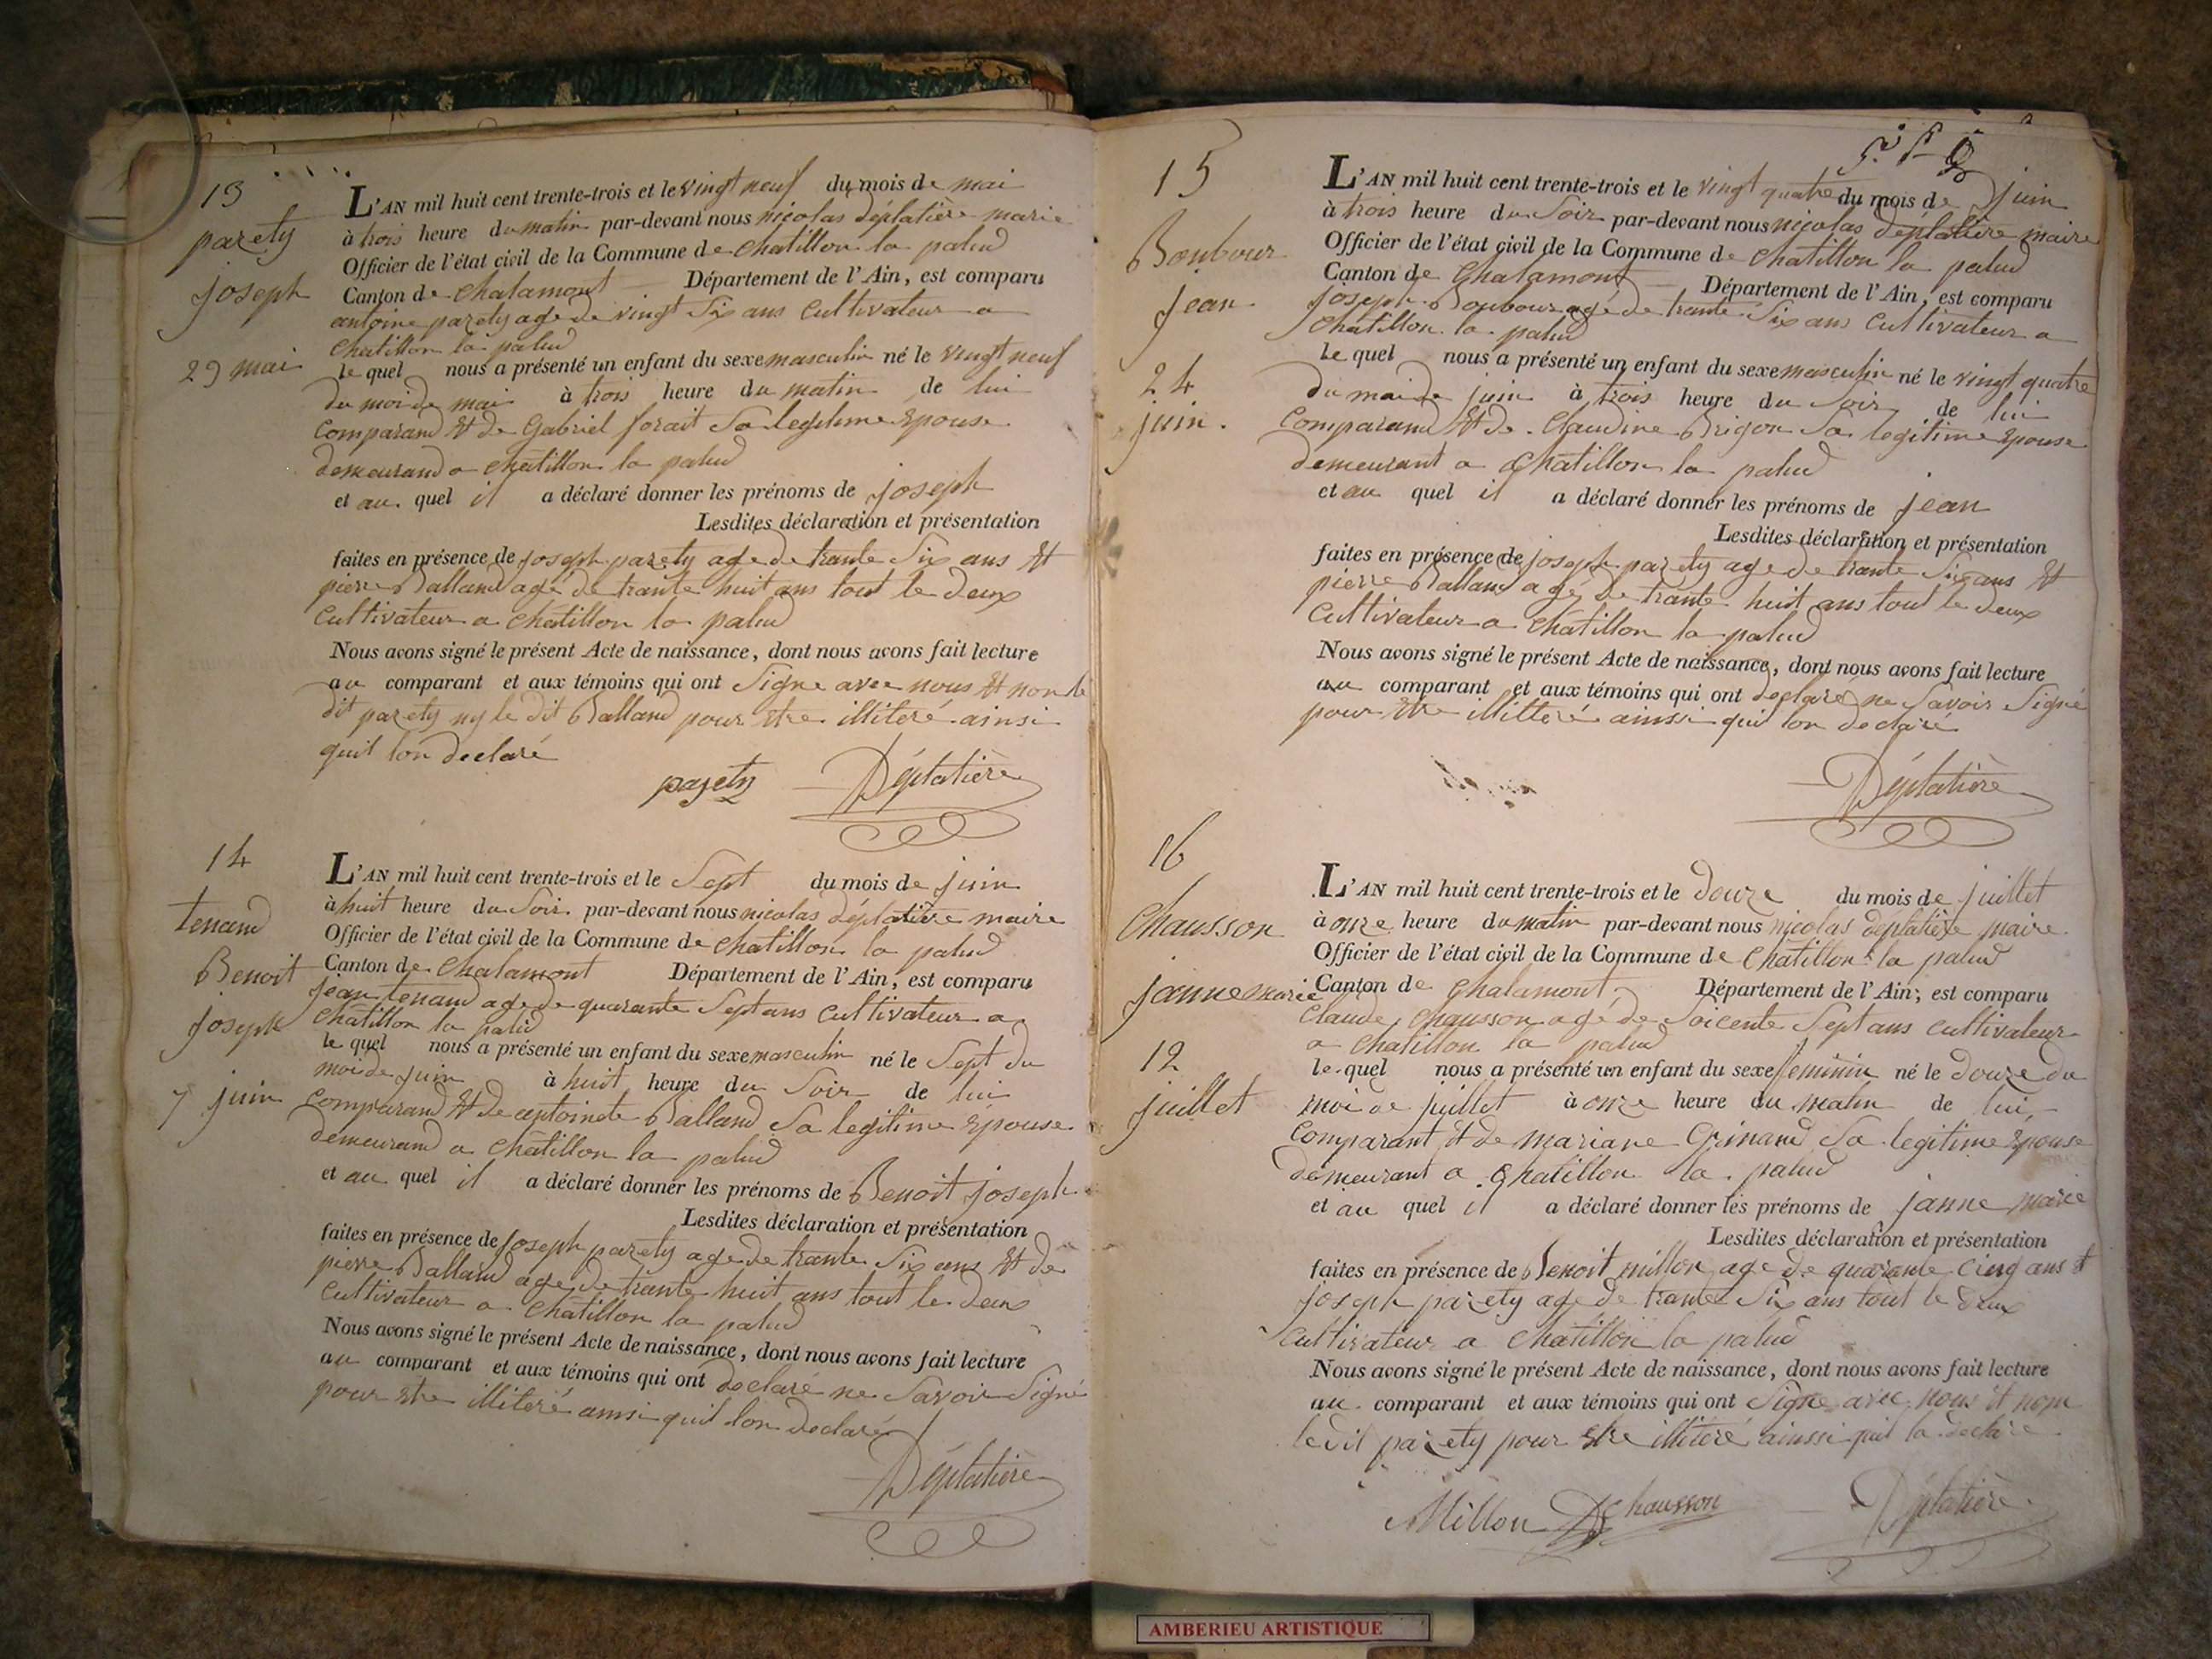 13
parety
joseph
29 mai
L'AN mil huit cent trente-trois et le vingt neuf du mois de mai
à trois heure du matin par-devant nous nicolas déplatière marie
Officier de l'état civil de la Commune de chatillon la palud
Canton de chalamont Département de l'Ain, est comparu
antoine parety age de vingt Six ans cultivateur a
chatillon la palud
le quel nous a présenté un enfant du sexe masculin né le vingt neuf
du moi de mai à trois heure du matin de lui
comparand Et de Gabriel forait Sa legitime Epouse
demeurand a chatillon la palud
et au quel il a déclaré donner les prénoms de joseph
Lesdites déclaration et présentation
faites en présence de joseph parety age de trante Six ans Et
pierre Balland agé de trante huit ans tout le deux
cultivateur a chatillon la palud
Nous avons signé le présent Acte de naissance, dont nous avons fait lecture
au comparant et aux témoins qui ont Signe avec nous Et non le
dit parety ny le dit Balland pour Etre illiteré ainsi
quil lon declaré
parety Déplatière
14
tenand
Benoit
joseph
7 juin
L'AN mil huit cent trente-trois et le Sept du mois de juin
à huit heure du Soir par-devant nous nicolas déplatière maire
Officier de l'état civil de la Commune de chatillon la palud
Canton de chalamont Département de l'Ain, est comparu
jean tenand age de quarante Sept ans cultivateur a
chatillon la palud
le quel nous a présenté un enfant du sexe masculin né le Sept du
moi de juin à huit heure du Soir de lui
comparand Et de antoinete Balland Sa legitime Epouse
demeurand a chatillon la palud
et au quel il a déclaré donner les prénoms de Benoit joseph
Lesdites déclaration et présentation
faites en présence de joseph parety age de trante Six ans Et de
pierre Balland age de trante huit ans tout le deux
cultivateur a chatillon la palud
Nous avons signé le présent Acte de naissance, dont nous avons fait lecture
au comparant et aux témoins qui ont declaré ne Savoir Signé
pour Etre illiteré ainsi quil lon declaré
Déplatière
15
Boubour
jean
24
juin.
L'AN mil huit cent trente-trois et le vingt quatre du mois de juin
à trois heure du Soir par-devant nous nicolas déplatière maire
Officier de l'état civil de la Commune de chatillon la palud
Canton de Chalamont Département de l'Ain, est comparu
joseph Boubour agé de trante Six ans cultivateur a
chatillon la palud
le quel nous a présenté un enfant du sexe masculin né le vingt quatre
du moi de juin à trois heure du Soir de lui
comparand Et de Claudine Brigon Sa legitime Epouse
demeurant a chatillon la palud
et au quel il a déclaré donner les prénoms de jean
Lesdites déclaration et présentation
faites en présence de joseph parety age de trante Six ans Et
pierre Balland agé de trante huit ans tout le deux
cultivateur a chatillon la palud
Nous avons signé le présent Acte de naissance, dont nous avons fait lecture
au comparant et aux témoins qui ont declaré ne Savoir Signé
pour Etre illitteré ainssi quil lon declaré
Déplatière
16
Chausson
janne marie
12
juillet
L'AN mil huit cent trente-trois et le douze du mois de juillet
à onze heure du matin par-devant nous nicolas déplatière maire
Officier de l'état civil de la Commune de chatillon la palud
Canton de Chalamont Département de l'Ain, est comparu
Claude chausson agé de Soicente Sept ans cultivateur
a chatillon la palud
le quel nous a présenté un enfant du sexe feminin né le douze du
moi de juillet à onze heure du matin de lui
comparant Et de mariane Grinand Sa legitime Epouse
demeurant a chatillon la palud
et au quel il a déclaré donner les prénoms de janne marie
Lesdites déclaration et présentation
faites en présence de Benoit millon age de quarante cinq ans Et
joseph parety age de trante Six ans tout le deux
cultivateur a chatillon la palud
Nous avons signé le présent Acte de naissance, dont nous avons fait lecture
au comparant et aux témoins qui ont Signe avec nous Et nom
le dit parety pour Etre illiteré ainssi quil la declaré
Millon Chausson Déplatière
AMBERIEU ARTISTIQUE